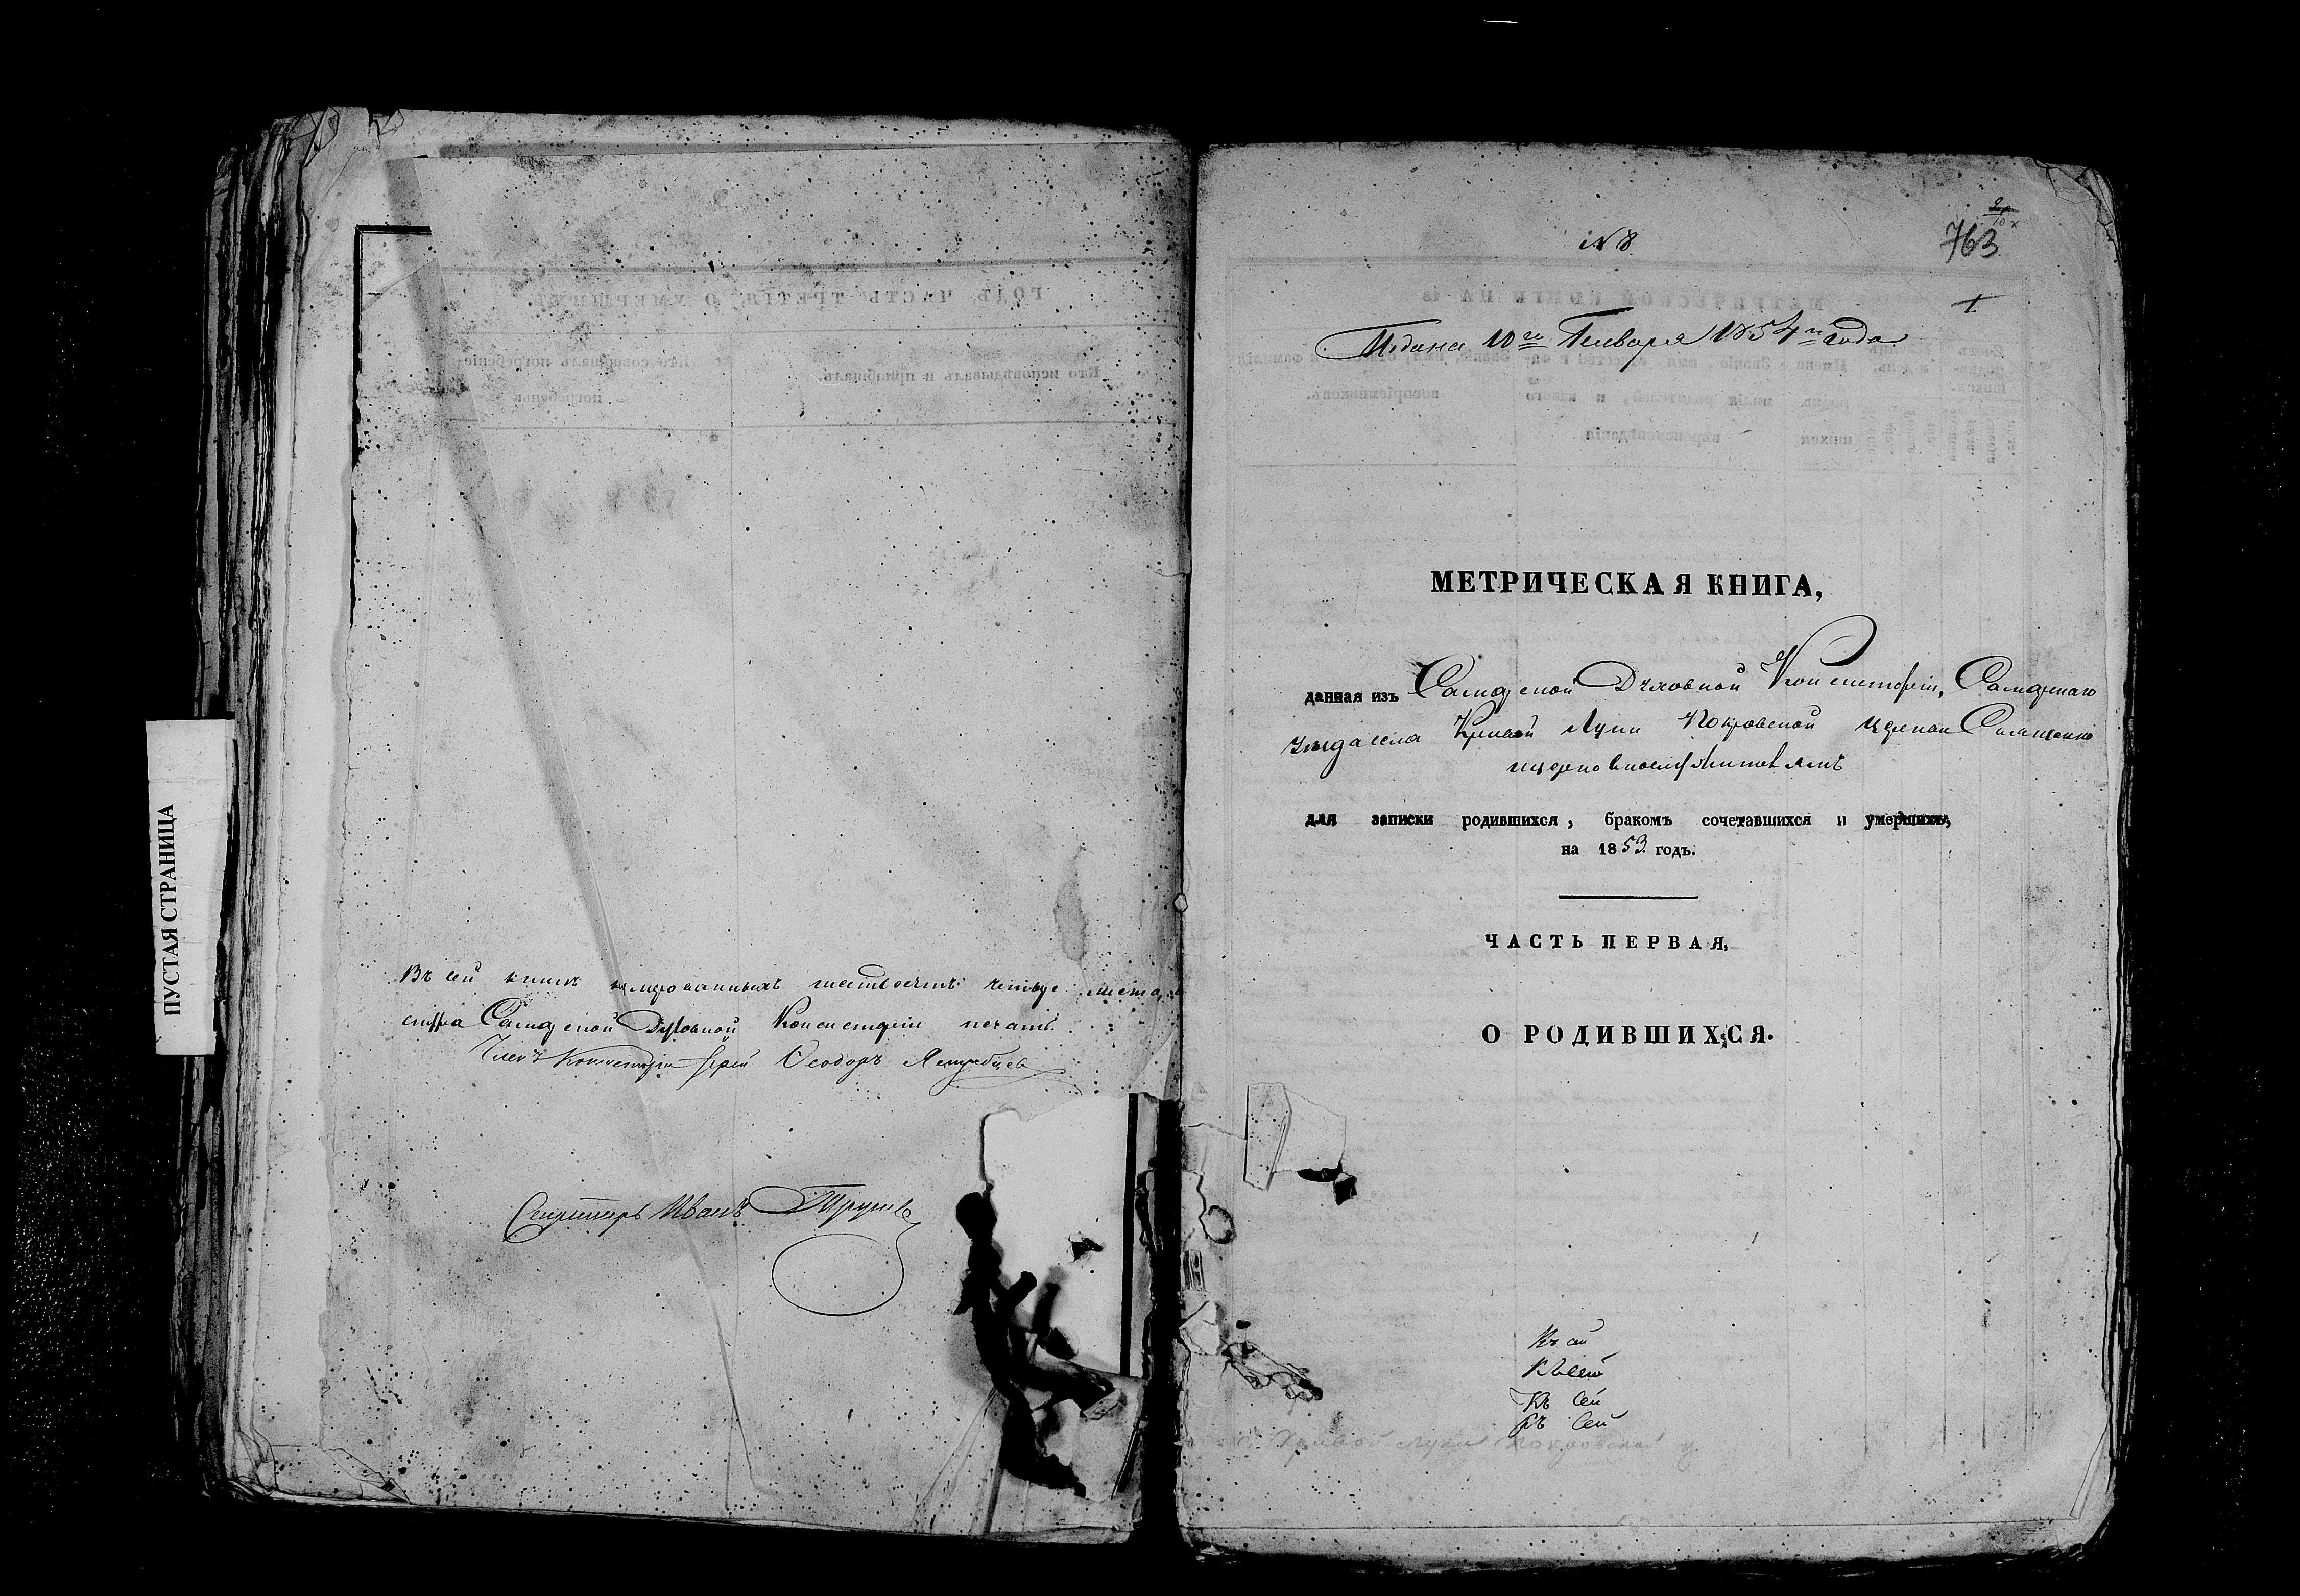 ПУСТАЯ СТРАНИЦА
Въ сей книгѣ нумерованныхъ шестьдесятъ четыре листа,
Самарской Духовной Консисторіи печать.
Членъ Консисторіи Іерей Ѳеодоръ Ястребцевъ
Секретарь Иванъ
№ 8.
763
1
Подана 10го Генваря 1854го года
МЕТРИЧЕСКАЯ КНИГА,
данная изъ Самарской Духовной Консисторіи, Самарскаго
уѣзда села Кривой Луки Покровской церкви Священно
церковнослужителямъ
для записки родившихся, бракомъ сочетавшихся и умершихъ,
на 1853 годъ.
ЧАСТЬ ПЕРВАЯ,
О РОДИВШИХСЯ.
Къ сей
Къ сей
Къ сей
Къ сей
Кривой Луки Покровской ц.